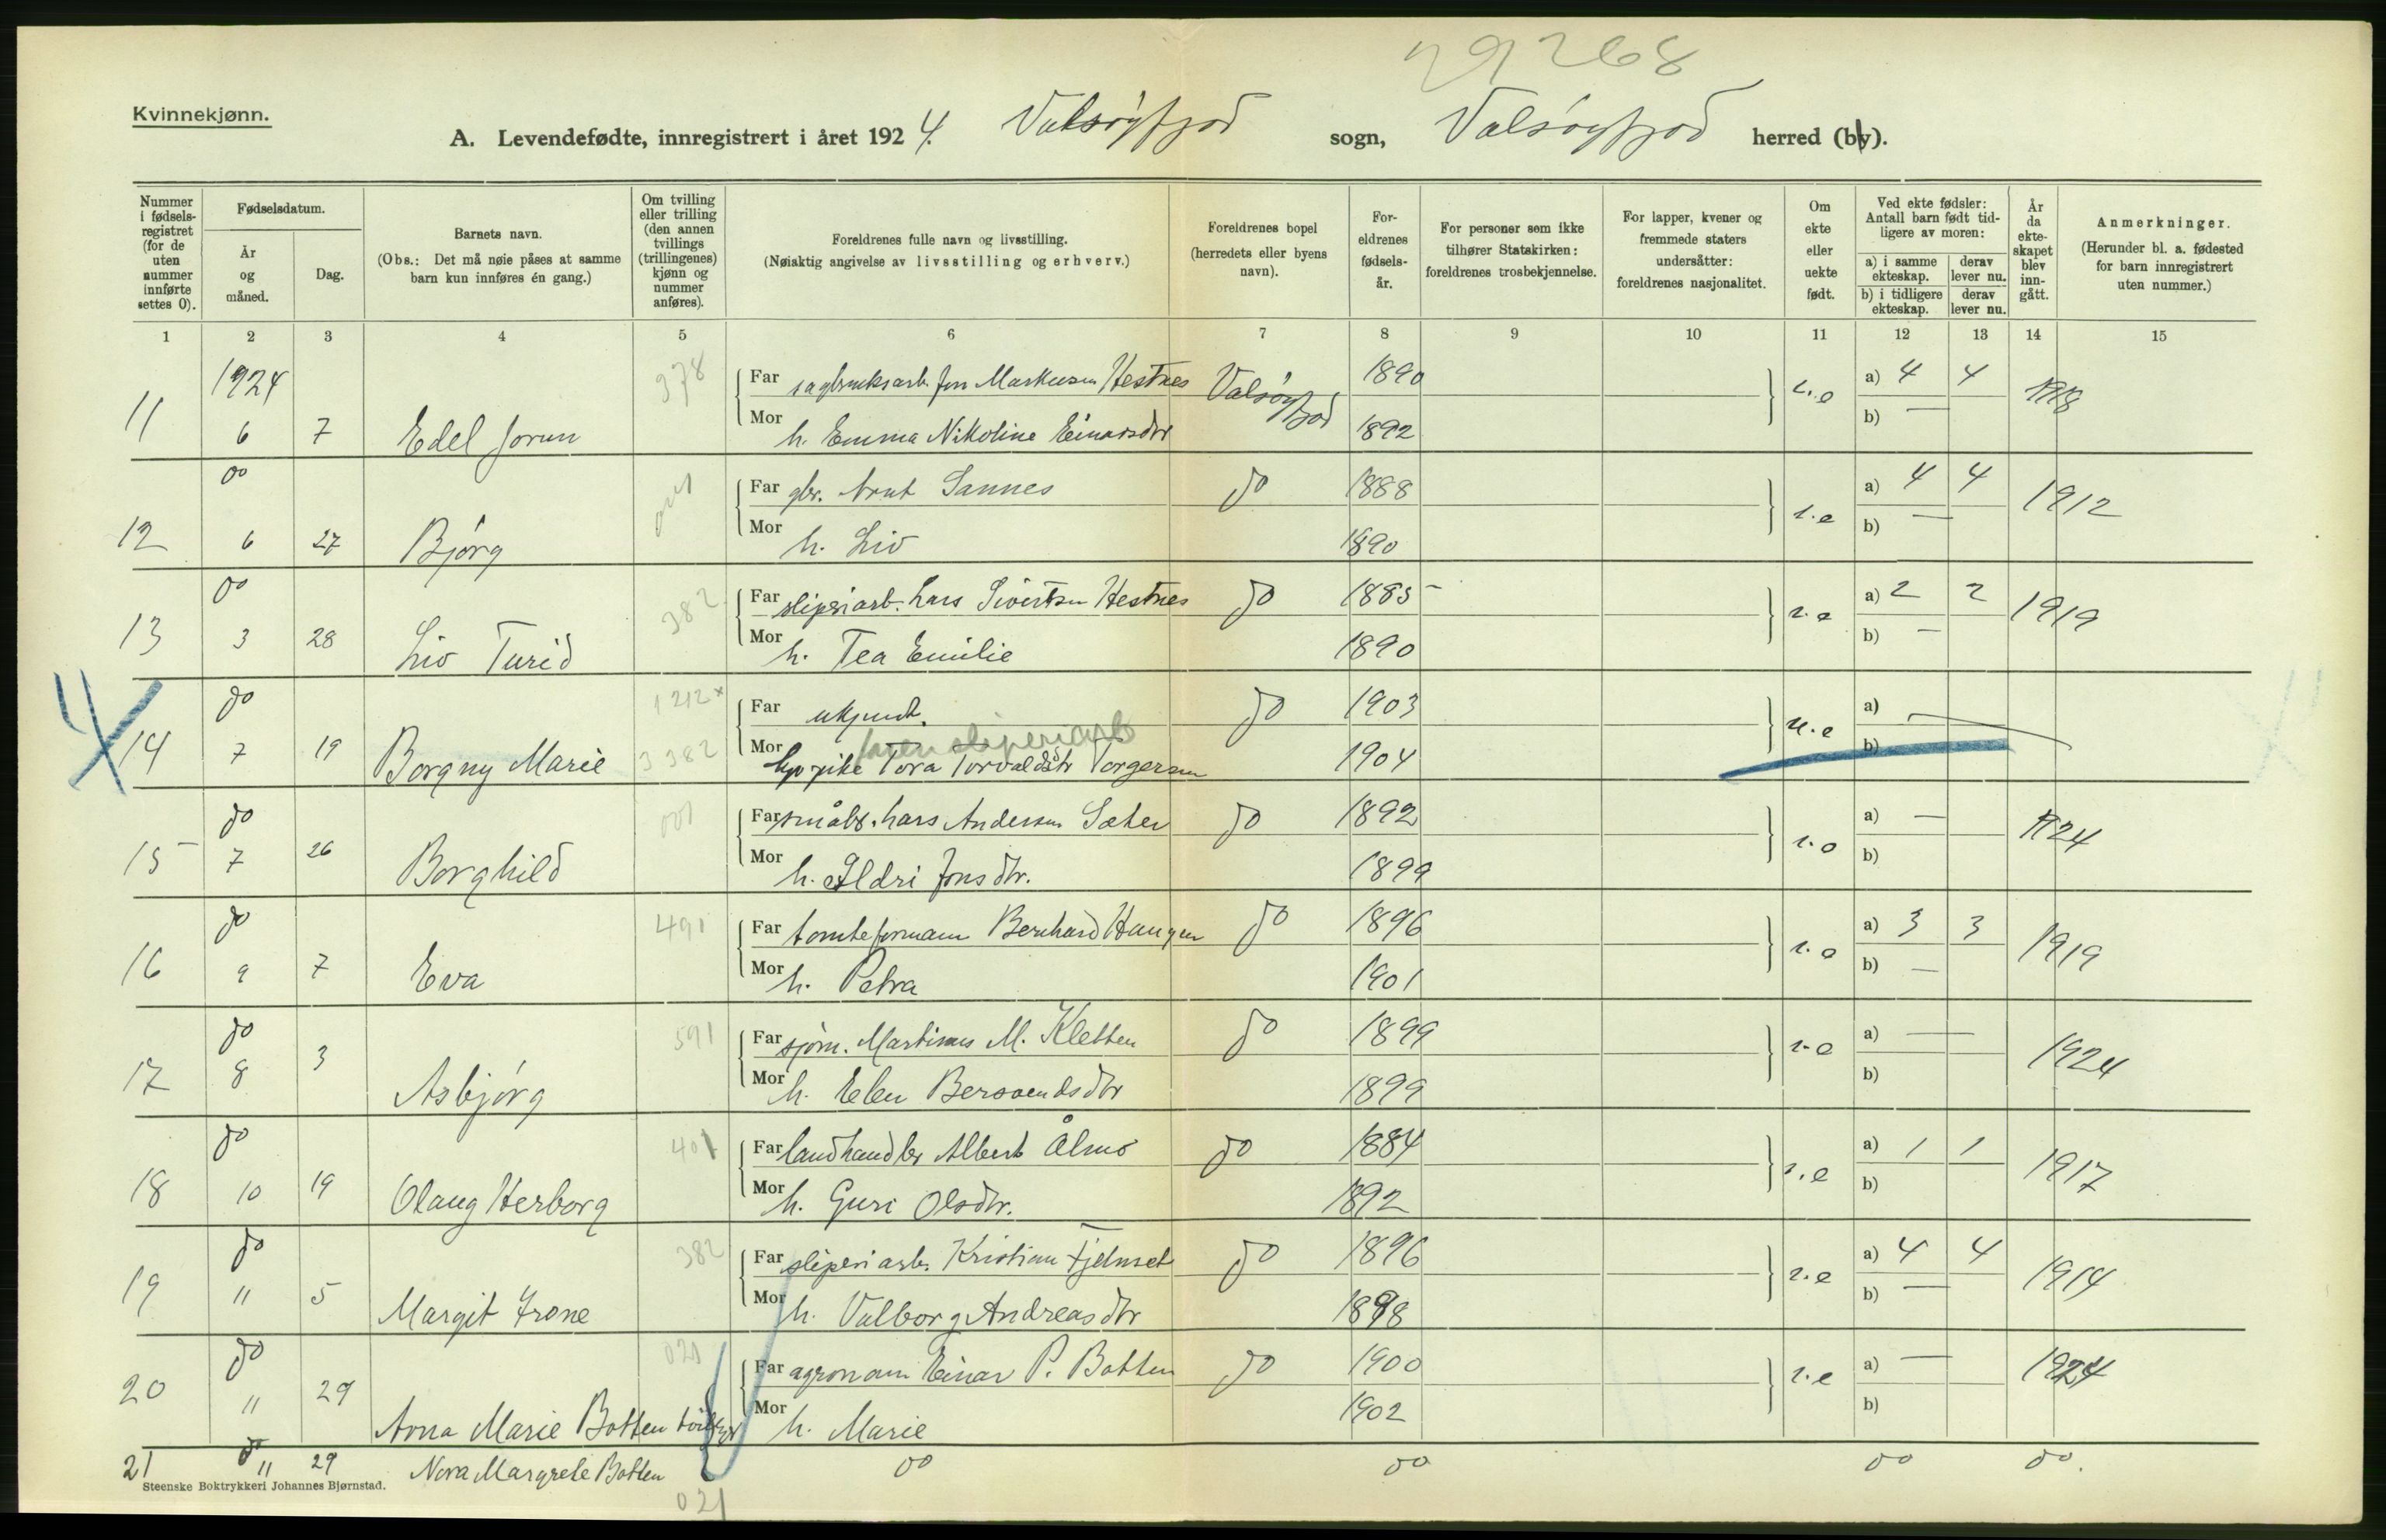 29268
Kvinnekjønn.
A. Levendefødte, innregistrert i året 1924. Valsøyfjod sogn, Valsøyfjod herred (by).
Nummer i fødsels-registret (for de uten nummer innførte settes 0).
Fødselsdatum.
År og måned.
Dag.
Barnets navn.
(Obs.: Det må nøie påses at samme barn kun innføres én gang.)
Om tvilling eller trilling (den annen tvillings (trillingenes) kjønn og nummer anføres).
Foreldrenes fulle navn og livsstilling.
(Nøiaktig angivelse av livsstilling og erhverv.)
Foreldrenes bopel
(herredets eller byens navn).
For-eldrenes fødsels-år.
For personer som ikke tilhører Statskirken: foreldrenes trosbekjennelse.
For lapper, kvener og fremmede staters undersåtter: foreldrenes nasjonalitet.
Om ekte eller uekte født.
Ved ekte fødsler: Antall barn født tid-ligere av moren:
a) i samme ekteskap. derav lever nu.
b) i tidligere ekteskap. derav lever nu.
År da ekte-skapet blev inn-gått.
Anmerkninger.
(Herunder bl. a. fødested for barn innregistrert uten nummer.)
1 2 3 4 5 6 7 8 9 10 11 12 13 14 15
1924 378 Far sagbruksarb. Jon Markusen Hestnes Valsøyfjod 1890 a) 4 4 1918
11 6 7 Edel Jorun Mor h. Emma Nikoline Einarsdtr 1892 b) —
do Far gbr. Arnt Sannes do 1888 a) 4 4 1912
12 6 27 Bjørg Mor h. Liv 1890 b) —
do 382 Far sliperiarb. Lars Sivertsen Hestnes do 1885 a) 2 2 1919
13 3 28 Liv Turid Mor h. Tea Emilie 1890 b) —
do 1212 x Far ukjendt. do 1903 u.e a)
faren sliperiarb
14 7 19 Borgny Marie 3382 Mor Tora Torvaldsdtr Torgersen 1904 b)
do 001 Far småbr. Lars Andersen Sæter do 1892 a) — 1924
15 7 26 Borghild Mor h. Ildri Jonsdtr. 1899 b)
do 491 Far tomteformann Bernhard Haugen do 1896 a) 3 3 1919
16 9 7 Eva Mor h. Petra 1901 b) —
do 591 Far sjøm. Martinus M. Kletten do 1899 a) — 1924
17 8 3 Asbjørg Mor h. Elen Bersvendsdtr 1899 b)
do 401 Far landhandler Albert Ålmo do 1884 a) 1 1 1917
18 10 19 Olaug Herborg Mor h. Guri Olsdtr. 1892 b)
do 382 Far sliperiarb. Kristian Fjelnset do 1896 a) 4 4 1914
19 11 5 Margit Irone Mor h. Valborg Andreasdtr 1898 b) —
do 021 Far agronom Einar P. Botten do 1900 a) — 1924
20 11 29 Anna Marie Botten tvilling Mor h. Marie 1902 b)
21 do 11 29 Nora Margrete Botten do do do do.
Steenske Boktrykkeri Johannes Bjørnstad.
021